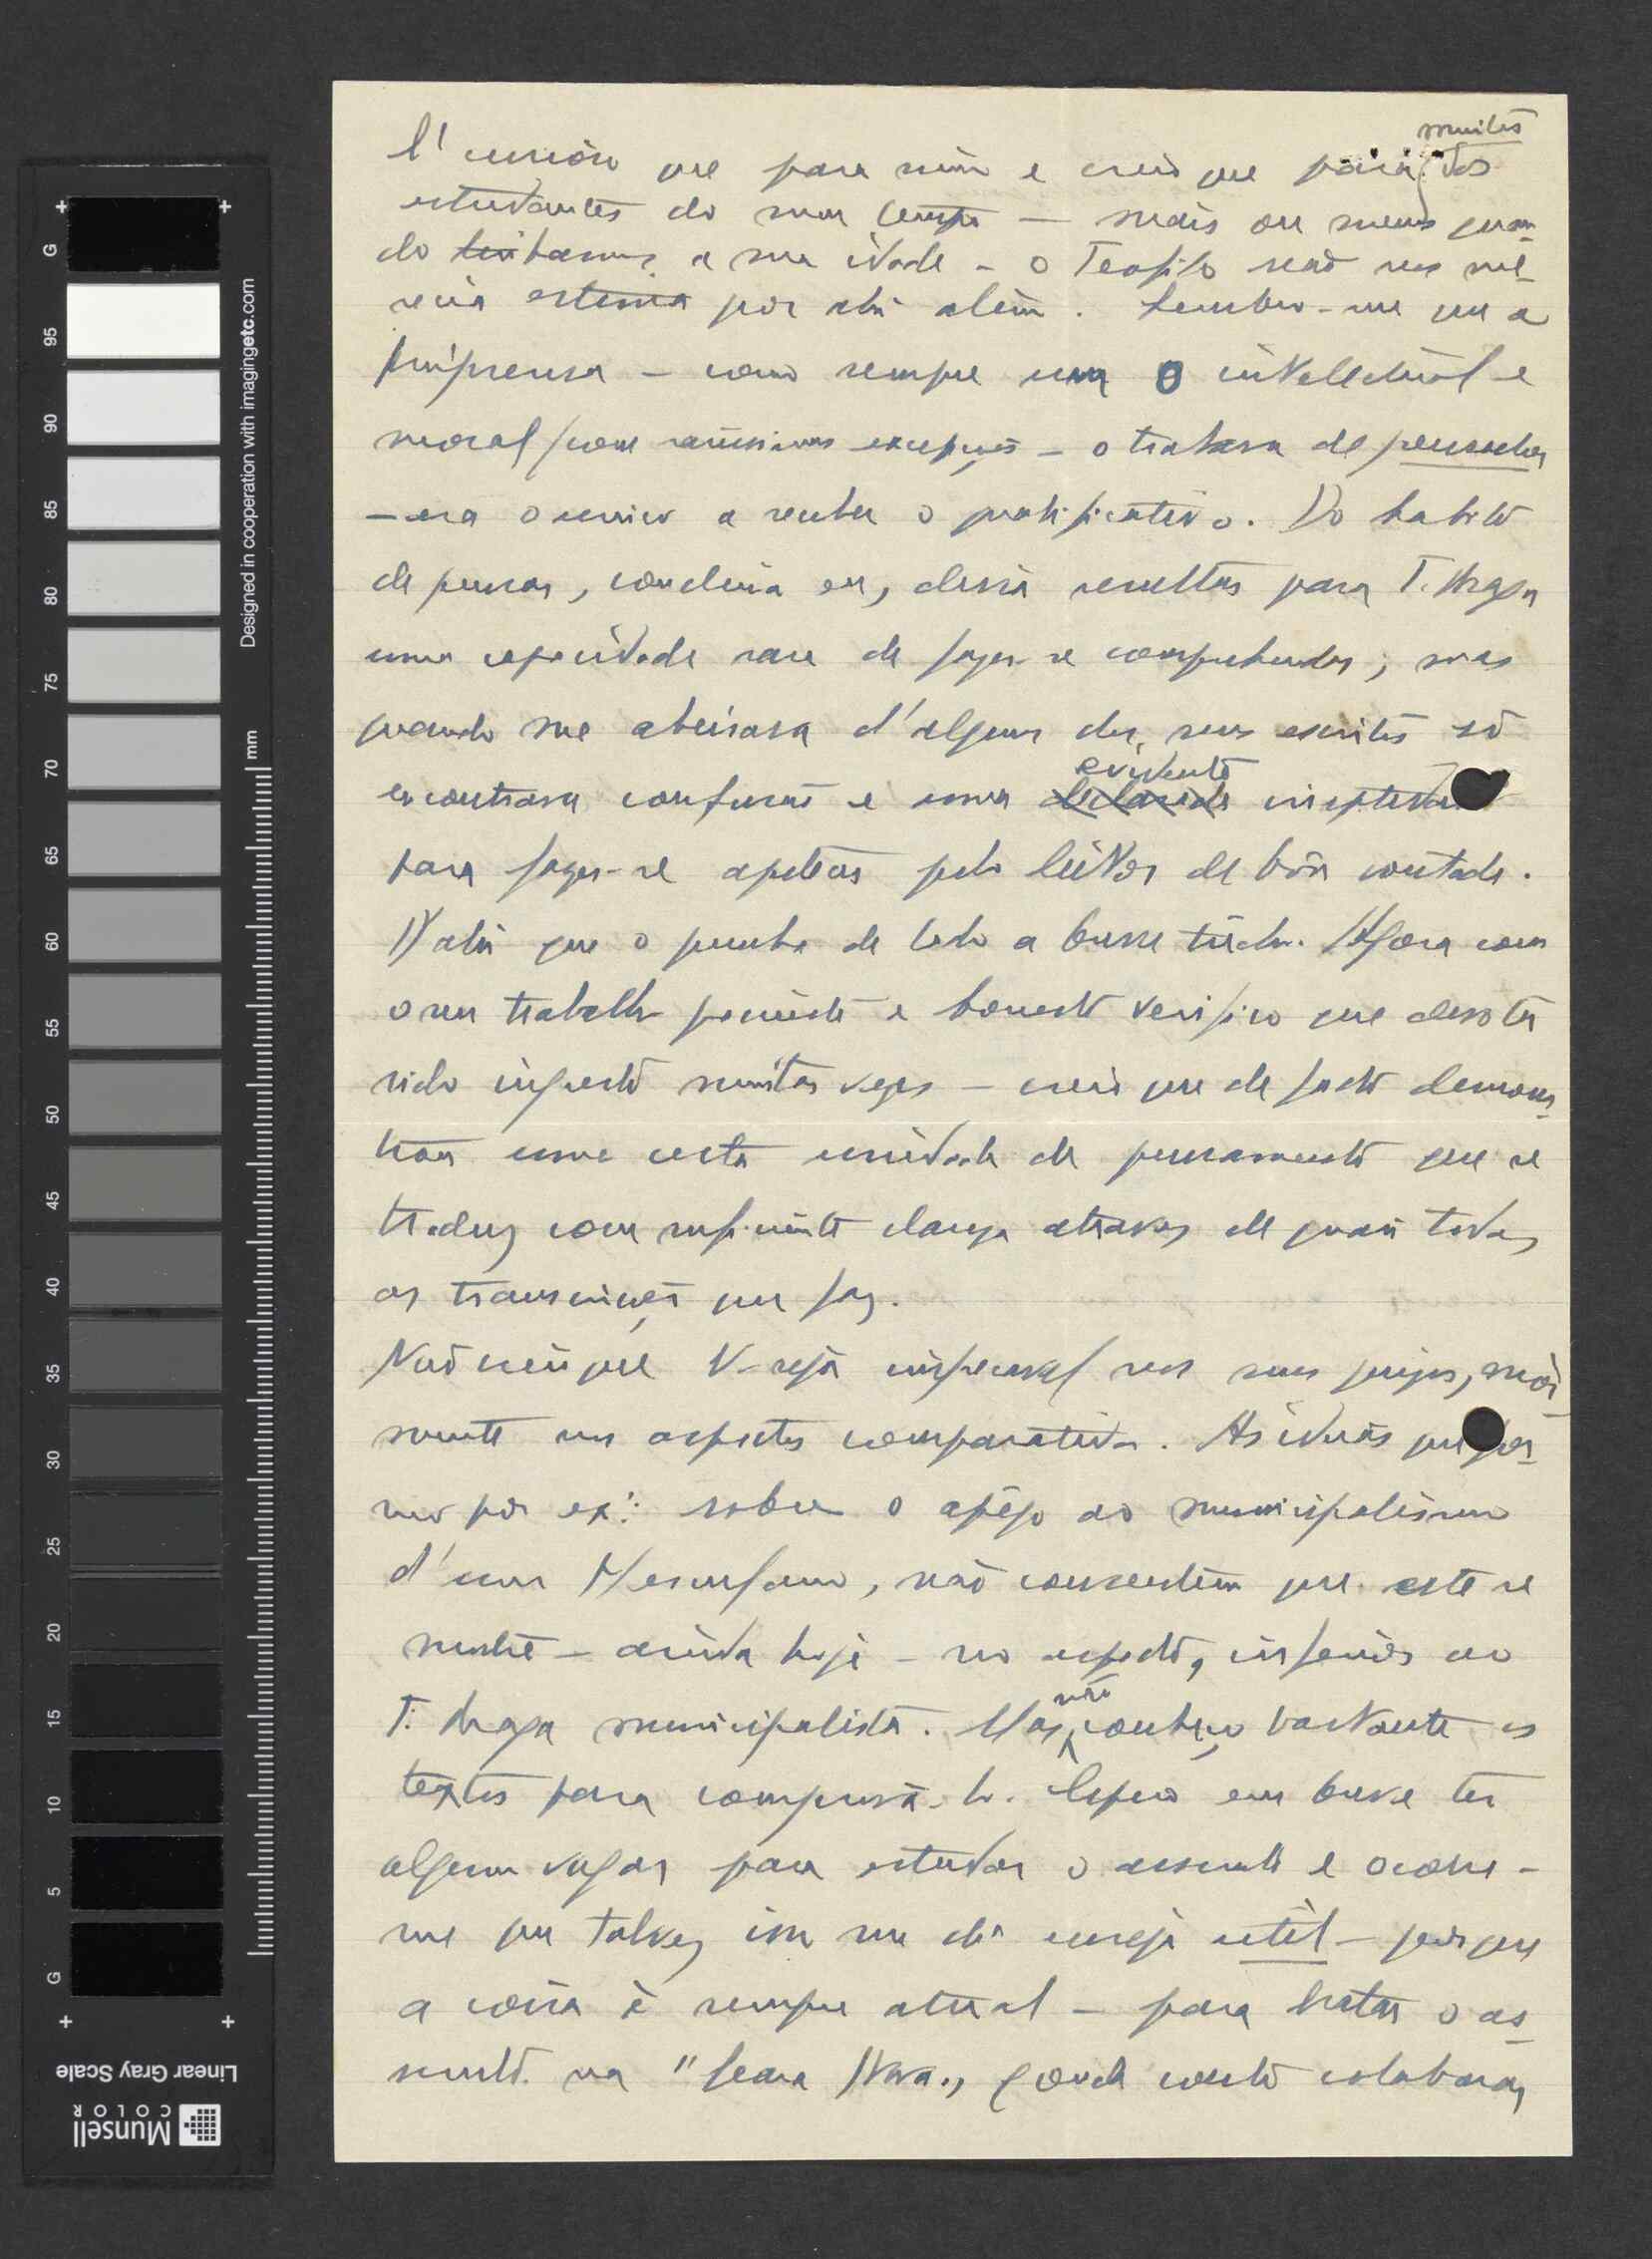 É curioso que para mim e creio que para muitos dos
estudantes do meu tempo — mais ou menos quan-
do tinhamos a sua idade — o Teofilo não nos me-
recia estima por ahi além. Lembro-me que a
Imprensa — como sempre uma 0 intellectual e
moral, com rarissimas excepções — o tratava de pensador
— era o unico a receber o qualificativo. Do habito
de pensar, concluia eu, devia resultar para T. Braga
uma capacidade rara de fazer-se comprehender; mas
quando me abeirava d'algum dos seus escritos só
encontrava confusão e uma evidente ineptidão
para fazer-se apetecer pelo leitor de bôa vontade.
D'ahi que o punha de lado a breve trecho. Agora com
o seu trabalho paciente e honesto verifico que devo ter
sido injusto muitas vezes — creio que de facto demons-
trou uma certa unidade de pensamento que se
traduz com suficiente clareza atravez de quasi todas
as transcrições que faz.
Não creio que V. seja impecavel nos seus juizos, mór
mente nos aspectos comparativos. As ideias que
por ex: sobre o apêgo ao municipalismo
d'um Herculano, não consentem que este se
mostre — ainda hoje — no aspecto, inferior ao
T. Braga municipalista. Mas não conheço bastante os
textos para comprová-lo. Espero em breve ter
algum vagar para estudar o assunto e ocorre-
me que talvez isso me dê ensejo util — porque
a coisa é sempre atual — para tratar o as-
sunto na "Seara Nova", onde conto colaborar,